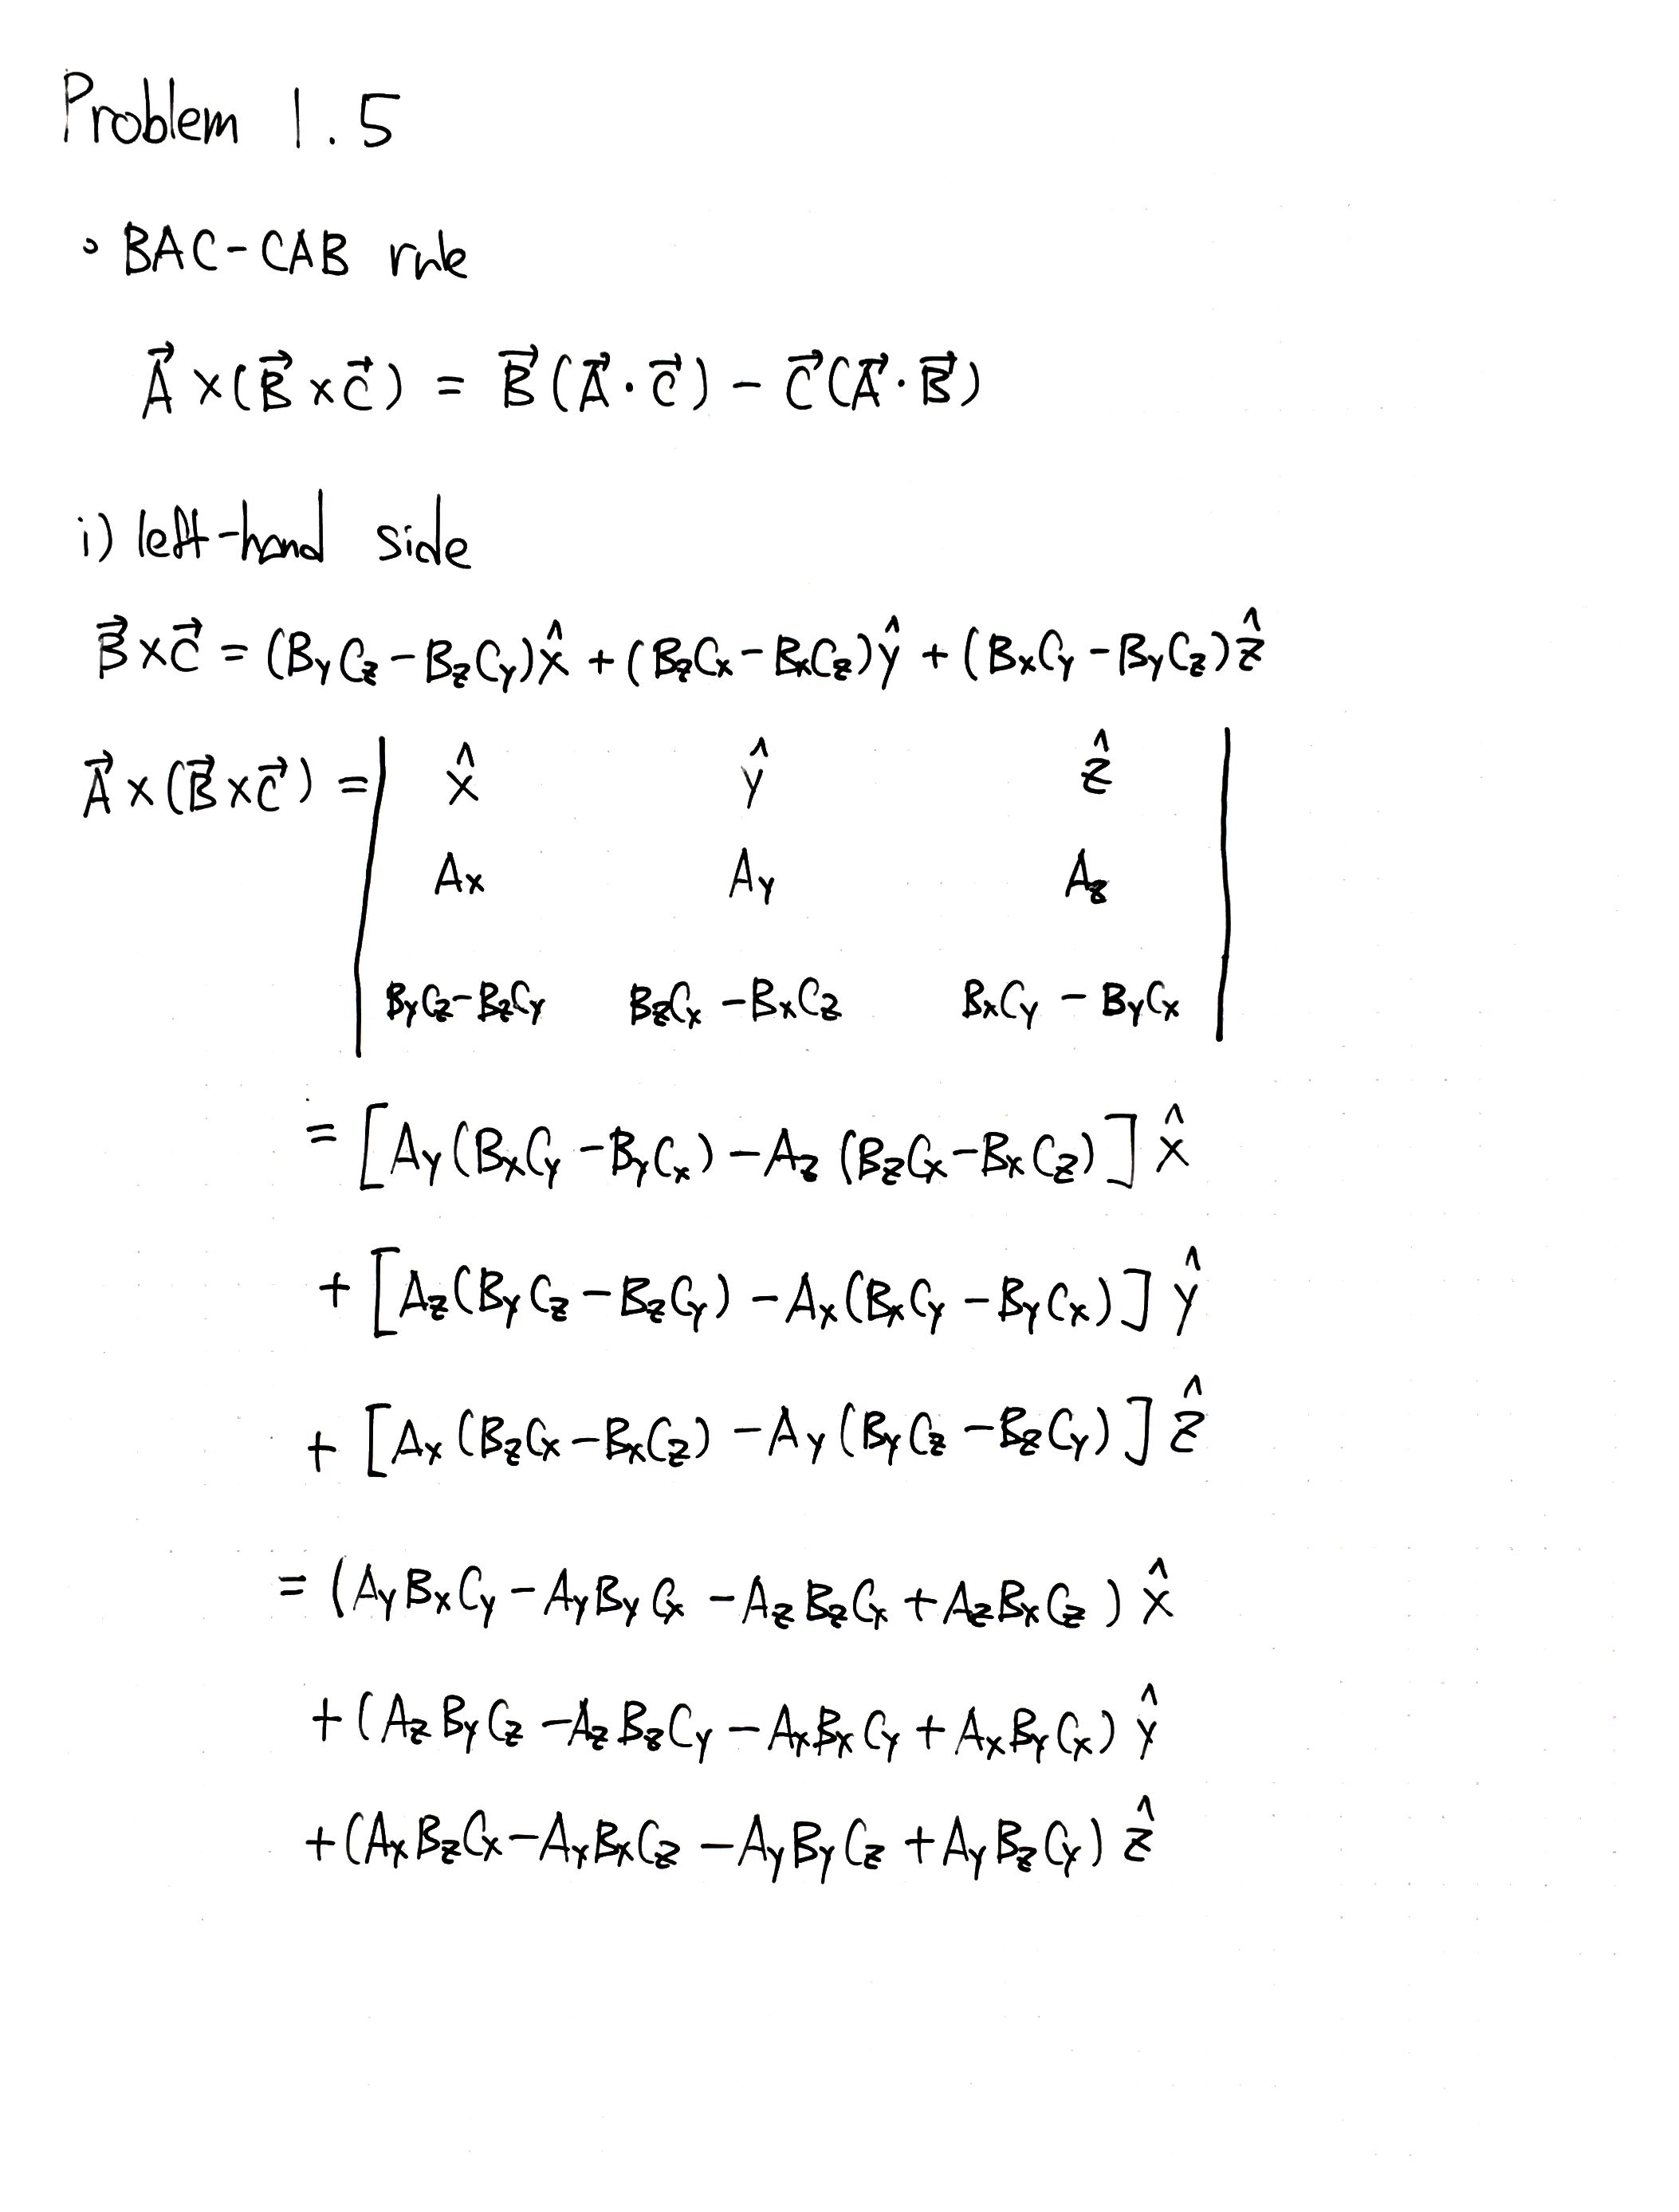 Problem 1.5
∘ BAC-CAB rule
A⃗ ×(B⃗ ×C⃗) = B⃗(A⃗·C⃗) − C⃗(A⃗·B⃗)
i) left-hand side
B⃗×C⃗ = (ByCz−BzCy)x̂ + (BzCx−BxCz)ŷ + (BxCy−ByCz)ẑ
A⃗×(B⃗×C⃗) = | x̂ ŷ ẑ |
Ax Ay Az
ByCz−BzCy BzCx−BxCz BxCy−ByCx
= [Ay(BxCy−ByCx)−Az(BzCx−BxCz)] x̂
+ [Az(ByCz−BzCy)−Ax(BxCy−ByCx)] ŷ
+ [Ax(BzCx−BxCz)−Ay(ByCz−BzCy)] ẑ
= (AyBxCy−AyByCx−AzBzCx+AzBxCz) x̂
+(AzByCz−AzBzCy−AxBxCy+AxByCx) ŷ
+(AxBzCx−AxBxCz−AyByCz+AyBzCy) ẑ